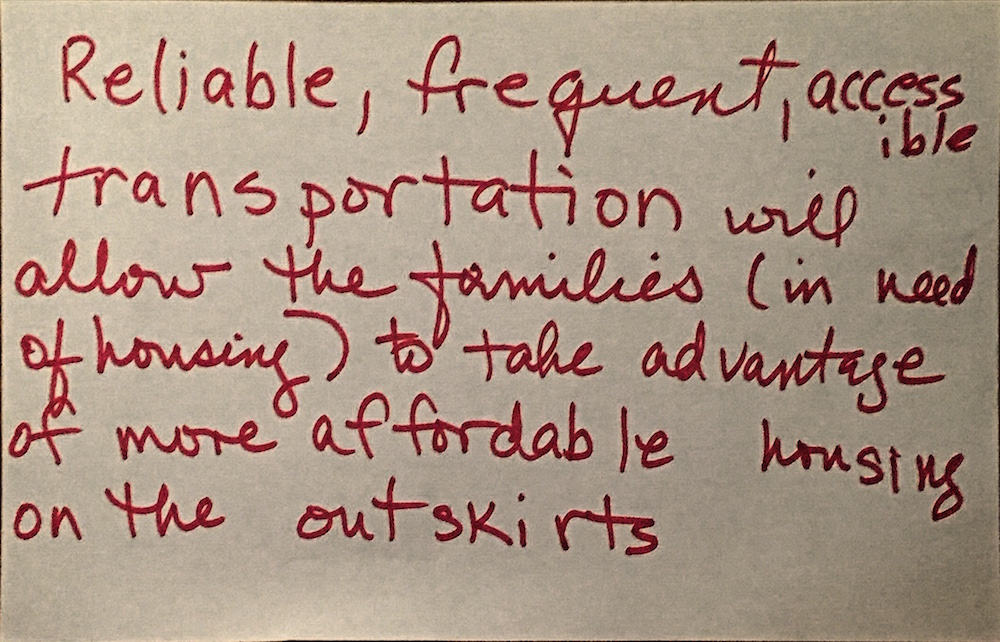 Reliable, frequent, accessible
transportation will
allow the families (in need
of housing) to take advantage
of more affordable housing
on the outskirts